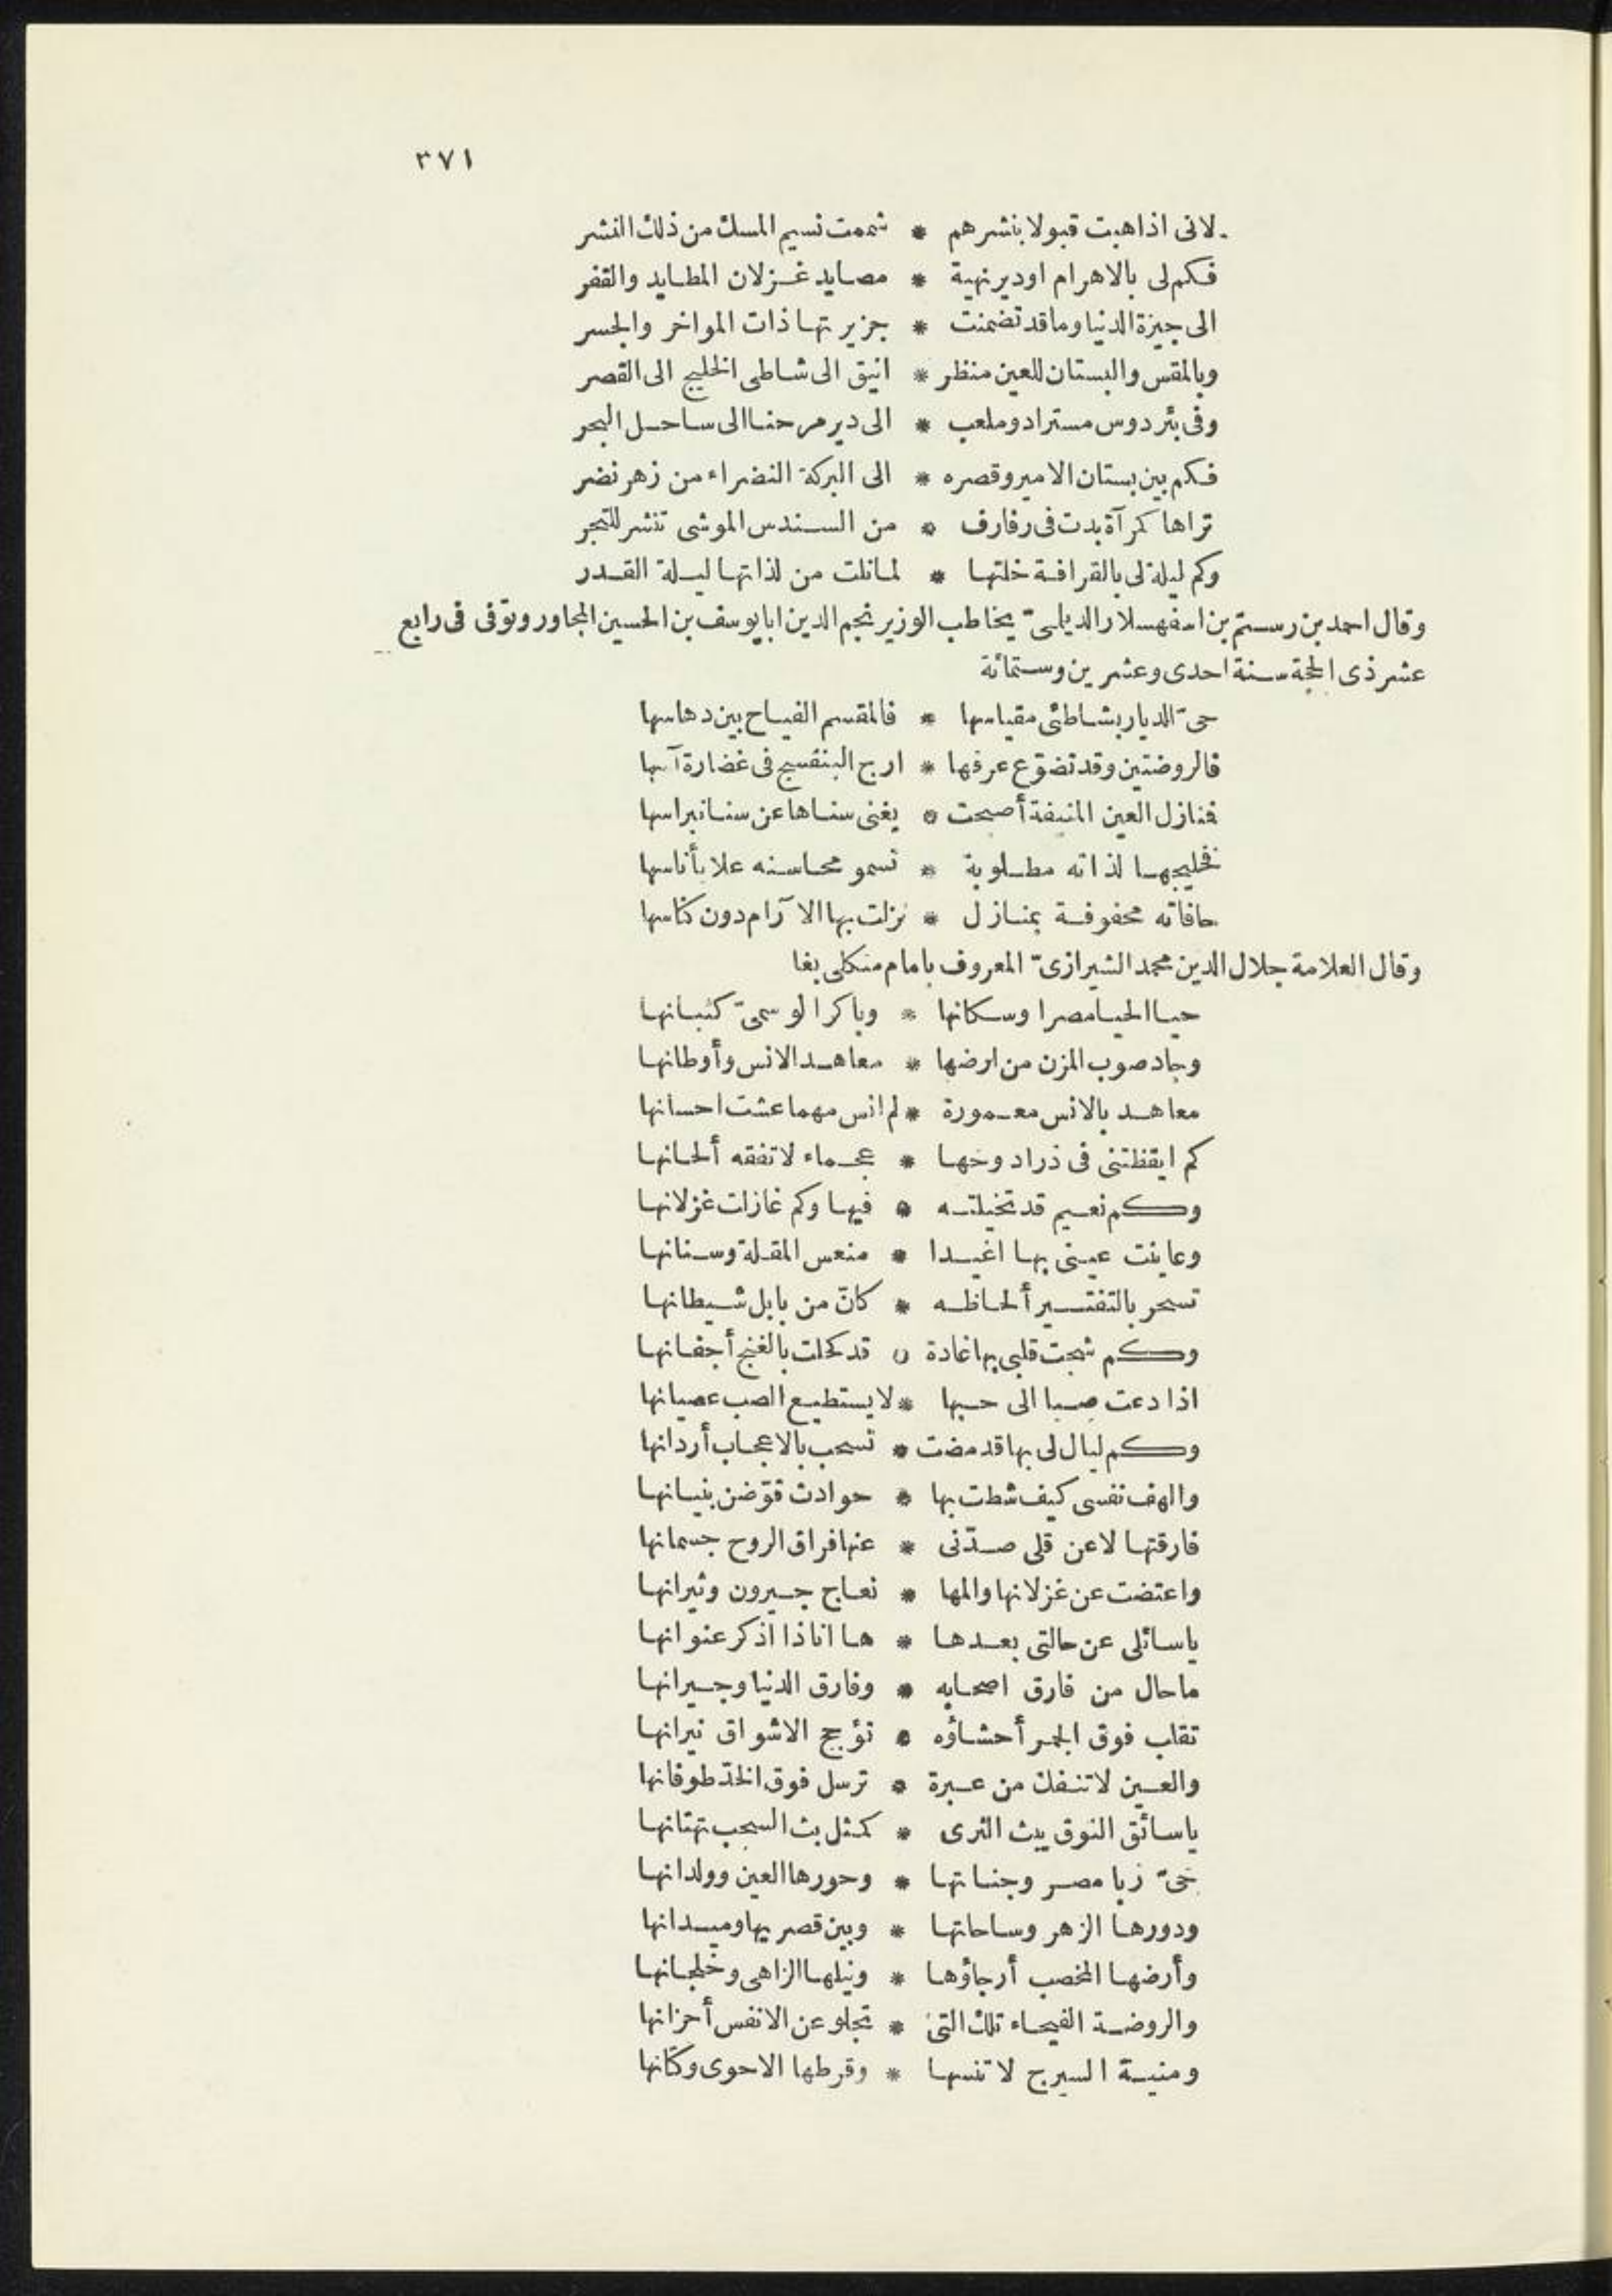 ٣٧١
لانى اذا هبت قبولا بنشرهم * شممت نسيم المسك من ذلك النشر
فكم لى بالاهرام او دير نهية * مصايد غزلان المطايد والقفر
الى جيزة الدنيا وما قد تضمنت * جزيرتها ذات المواخر والجسر
وبالمقس والبستان للعين منظر * انيق الى شاطى الخليج الى القصر
وفى بئر دوس مستراد وملعب * الى دير مرحنا الى ساحل البحر
فكم بين بستان الامير وقصره * الى البركة النضراء من زهر نضر
تراها كمرآة بدت فى رفارف * من السندس الموشى تنشر للتجر
وكم ليلة لى بالقرافة خلتها * لما نلت من لذاتها ليلة القدر
وقال احمد بن رستم بن اسفهسلار الديلمىّ يخاطب الوزير نجم الدين ابا يوسف بن الحسين المجاور وتوفى فى رابع
عشر ذى الحجة سنة احدى وعشرين وستمائة
حىّ الديار بشاطئى مقياسها * فالمقسم الفياح بين دهاسها
فالروضتين وقد تضوّع عرفها * ارج البنفسج فى غضارة آسها
فنازل العين المنيفة أصبحت * يغنى سناها عن سنا نبراسها
فخليجها لذاته مطلوبة * تسمو محاسنه علا بأناسها
حافاته محفوفة بمنازل * نزلت بها الا آرام دون كناسها
وقال العلامة جلال الدين محمد الشيرازىّ المعروف بامام منكلى بغا
حيا الحيا مصرا وسكانها * وباكر الوسمىّ كثبانها
وجاد صوب المزن من ارضها * معاهد الانس وأوطانها
معاهد بالانس معمورة * لم انس مهما عشت احسانها
كم ايقظتنى فى ذرا دوحها * عجماء لا تفقه ألحانها
وكم نعيم قد تخيلته * فيها وكم غازات غزلانها
وعاينت عينى بها اغيدا * منعس المقلة وسنانها
تسحر بالتفتير ألحاظه * كانّ من بابل شيطانها
وكم شجت قلبى بها غادة * قد كحلت بالغنج أجفانها
اذا دعت صبا الى حبها * لا يستطيع الصب عصيانها
وكم ليال لى بها قد مضت * تسحب بالاعجاب أردانها
والهف نفسى كيف شطت بها * حوادث قوّضن بنيانها
فارقتها لا عن قلى صدّنى * عنها فراق الروح جسمانها
واعتضت عن غزلانها والمها * نعاج جيرون وثيرانها
ياسائلى عن حالتى بعدها * ها اناذا اذكر عنوانها
ماحال من فارق اصحابه * وفارق الدنيا وجيرانها
تقلب فوق الجمر أحشاؤه * تؤجج الاشواق نيرانها
والعين لا تنفك من عبرة * ترسل فوق الخدّ طوفانها
ياسائق النوق يبث الثرى * كمثل بث السحب تهتانها
حىّ ربا مصر وجناتها * وحورها العين وولدانها
ودورها الزهر وساحاتها * وبين قصريها وميدانها
وأرضها المخصب أرجاؤها * ونيلها الزاهى وخلجانها
والروضة الفيحاء تلك التى * تجلو عن الانفس أحزانها
ومنية السيرج لا تنسها * وقرطها الاحوى وكتانها